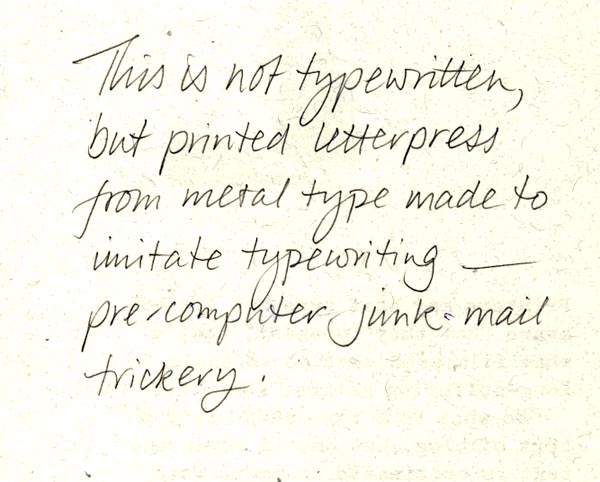 This is not typewritten,
but printed letterpress
from metal type made to
imitate typewriting —
pre-computer junk-mail
trickery.